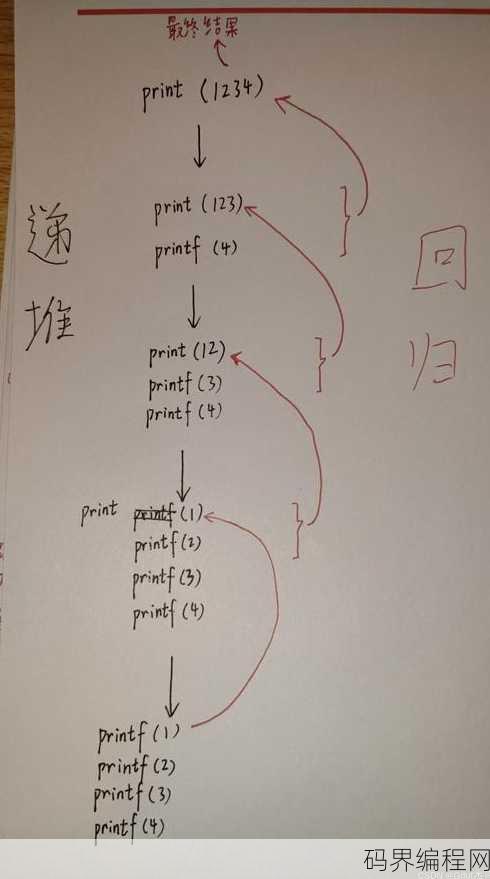 最终结果
print (1234)
print (123)
printf (4)
递堆
回归
print (12)
printf (3)
printf (4)
print printf (1)
printf (2)
printf (3)
printf (4)
printf (1)
printf (2)
printf (3)
printf (4)
码界编程网